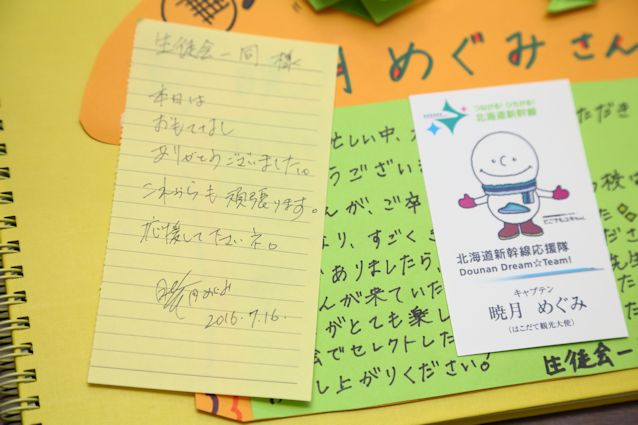 月 めぐみ さん
生徒会一同 様
本日は
おもてなし
ありがとうございました。
これからも 頑張ります。
応援して下さいネ。
暁月めぐみ
2016.7.16.
つながる!ひろがる!
北海道新幹線
どこでもユキちゃん
北海道新幹線応援隊
Dounan Dream☆Team!
キャプテン
暁月 めぐみ
(はこだて観光大使)
忙しい中、
ただき
うござい
んが、ご卒
校は
なり、すごく
ありましたら、
んが来ていた
がとても楽し
会でセレクトした
し上がりください!
生徒会一